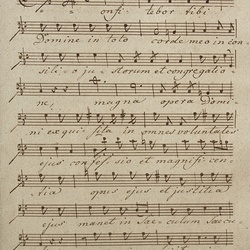 onfi tebor tibi
Domine in toto corde meo in con
sili o ju storum et congregatio
ne, magna opera Domi
ni exqui sita in omnes voluntates
ejus confes sio et magnifi cen
tia opus ejus et justitia
ejus manet in sae culum saecu